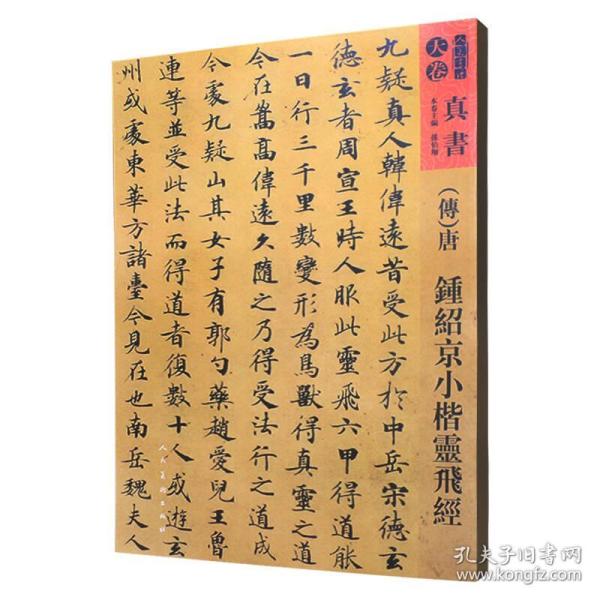 大卷
真書
本卷主編 孫伯翔
(傳)唐 鍾紹京小楷靈飛經
九疑真人韓偉遠昔受此方於中岳宋德玄
德玄者周宣王時人服此靈飛六甲得道能
一日行三千里數變形為鳥獸得真靈之道
今在嵩高偉遠久隨之乃得受法行之道成
今處九疑山其女子有郭勺藥趙愛兒王魯
連等並受此法而得道者復數十人或遊玄
州或處東華方諸臺今見在也南岳魏夫人
人民美術出版社
孔夫子旧书网
www.kongfz.com